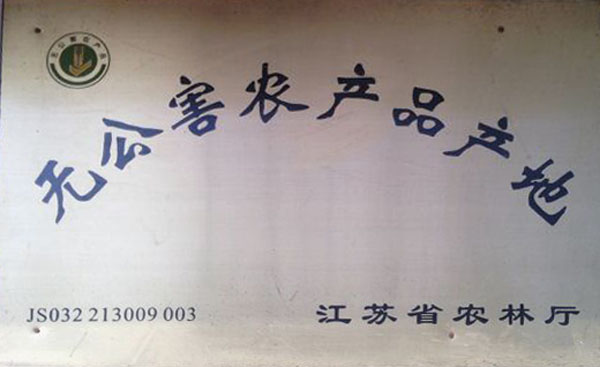 无公害农产品
无公害农产品产地
JS032 213009 003
江苏省农林厅